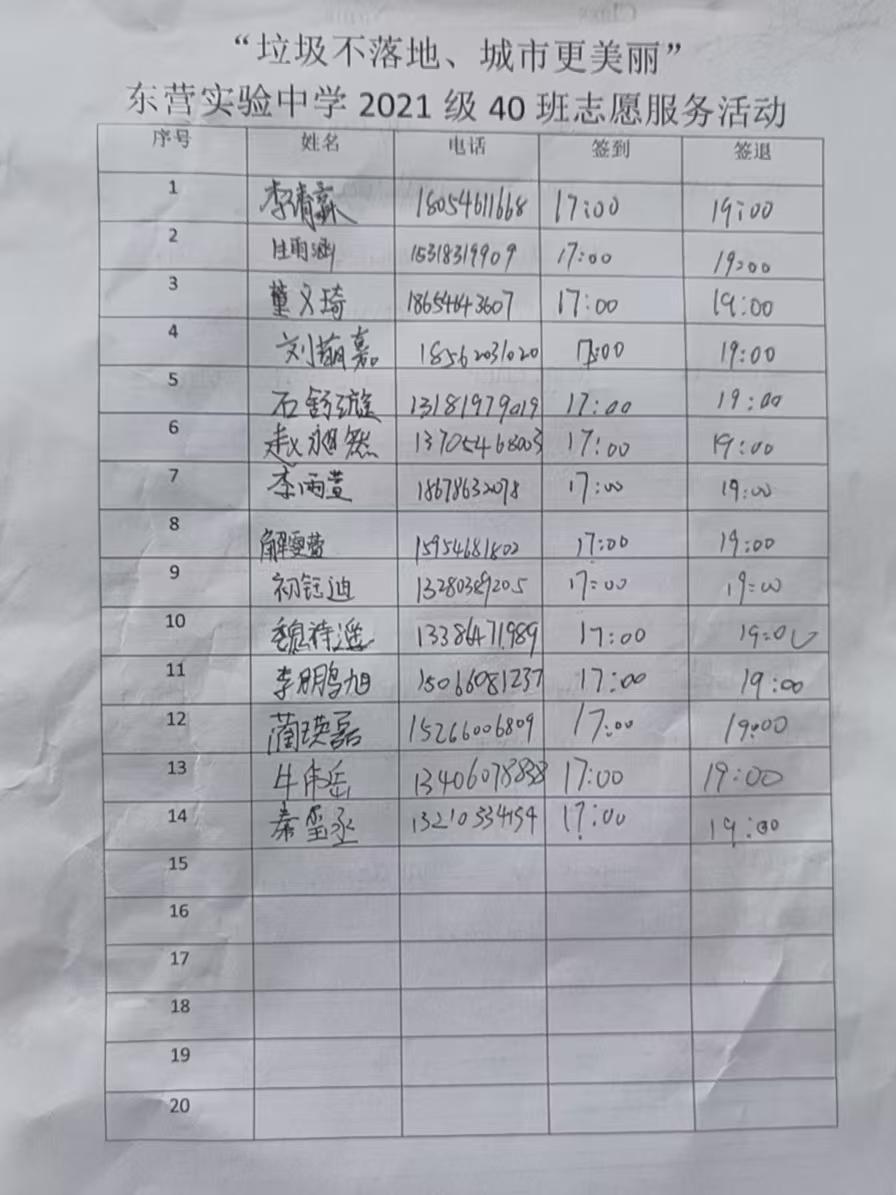 “垃圾不落地、城市更美丽”
东营实验中学 2021 级 40 班志愿服务活动
序号 姓名 电话 签到 签退
1 李靖赢 18054611668 17:00 19:00
2 雨涵 15318319909 17:00 19:00
3 董义琦 18654643607 17:00 19:00
4 刘萌嘉 18562031020 17:00 19:00
5 石舒漩 13181979019 17:00 19:00
6 赵昶然 13705468003 17:00 19:00
7 李雨萱 18678632078 17:00 19:00
8 解雯茜 15954681802 17:00 19:00
9 初钰迪 13280389205 17:00 19:00
10 魏祎遥 13386471989 17:00 19:00
11 李鹏旭 15066081237 17:00 19:00
12 蔺瑛磊 15266006809 17:00 19:00
13 牛伟岳 13406078838 17:00 19:00
14 秦玺丞 13210334154 17:00 19:00
15
16
17
18
19
20